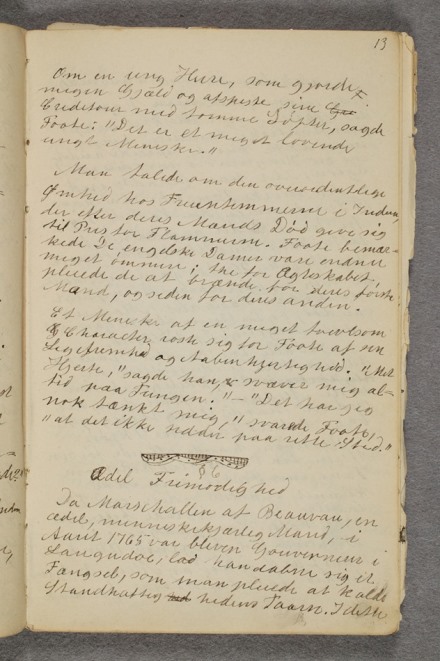 13
Om en ung Herre, som gjorde
megen Gjæld og afspiste sine
Creditorer med tomme Løfter, sagde
Foote: "Det er et meget lovende
ungt Menneske."
Man talede om den overordentlige
Ømhed hos Fruentimmerne i Indien,
der efter deres Mænds Død give sig
til Pris for Flammerne. Foote bemær-
kede De engelske Damer vare endnu
meget ømmere; thi før Ægteskabet
pleiede de at brænde for deres første
Mand, og siden for deres anden.
Et Menneske af en meget tvivlsom
Charakteer roste sig for Foote af sin
Ligefremhed og Aabenhjertighed. "Mit
Hjerte," sagde han, "svæver mig al-
tid paa Tungen." — "Det har jeg
nok tænkt mig," svarede Foote,
"at det ikke sidder paa rette Sted."
66
Ædel Frimodighed
Da Marschallen af Beauvau, en
ædel, menneskekjærlig Mand, i
Aaret 1765 var bleven Gouverneur i
Languedoc, lod han aabne sig et
Fængsel, som man pleiede at kalde
Standhaftighedens Taarn. I dette